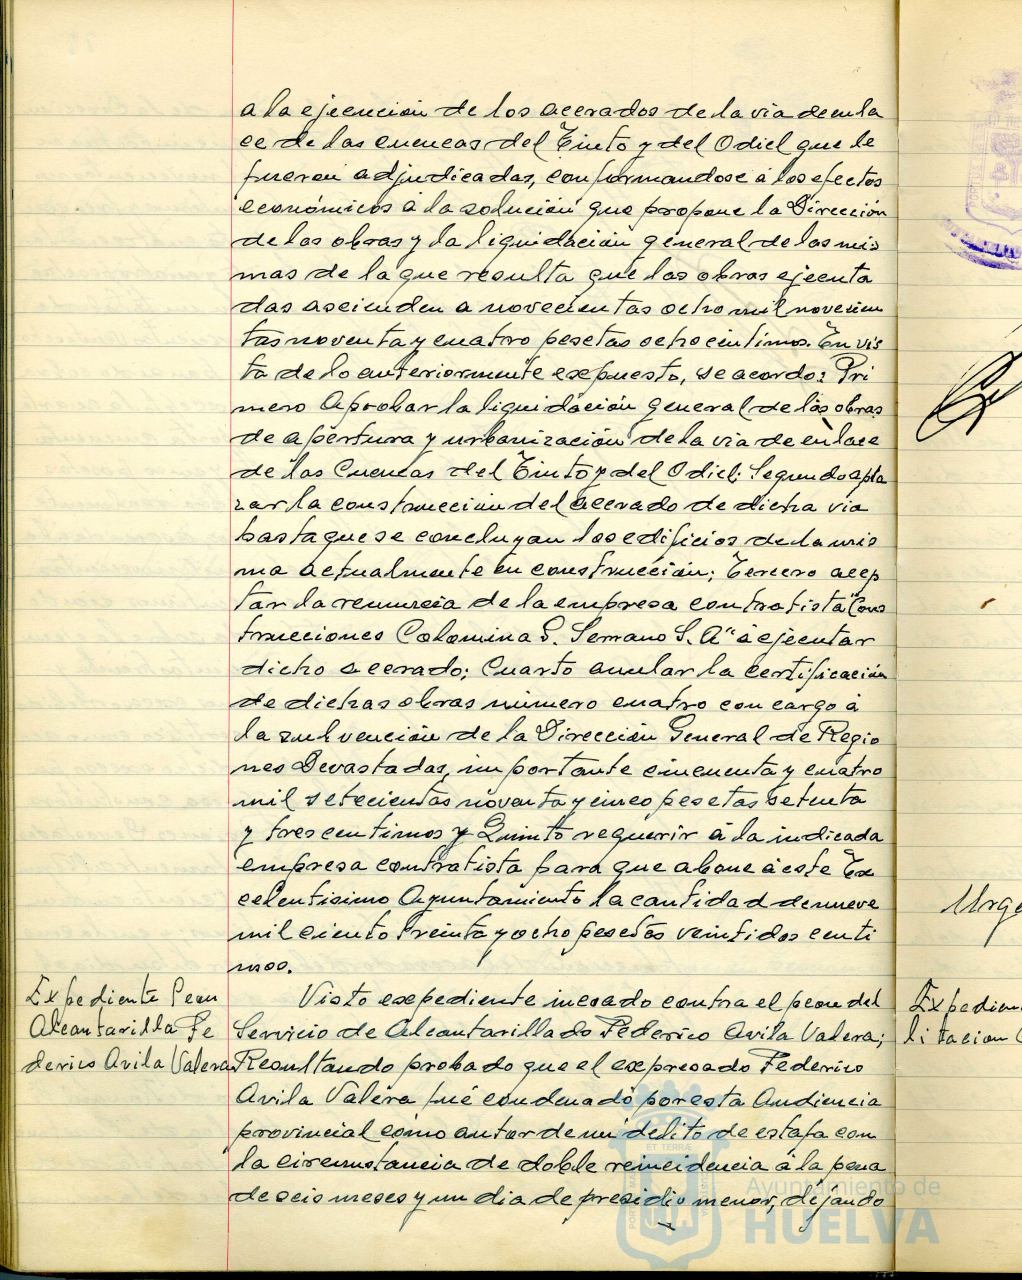 a la ejecución de los acerados de la via de enla
ce de las cuencas del Tinto y del Odiel que le
fueron adjudicadas, conformandose á los efectos
económicos á la solución que propone la Dirección
de las obras y la liquidación general de las mis
mas de la que resulta que las obras ejecuta
das ascienden a novecientas ocho mil novecien
tas noventa y cuatro pesetas ocho centimos. En vis
ta de lo anteriormente expuesto, se acordo: Pri
mero Aprobar la liquidación general de las obras
de apertura y urbanización de la via de enlace
de las Cuencas del Tinto y del Odiel; Segundo apla
zar la construcción del acerado de dicha via
hasta que se concluyan los edificios de la mis
ma actualmente en construcción; Tercero acep
tar la renuncia de la empresa contratista "Cons
trucciones Colomina G. Serrano S. A" á ejecutar
dicho acerado; Cuarto anular la certificación
de dichas obras número cuatro con cargo á
la subvención de la Dirección General de Regio
nes Devastadas, importante cincuenta y cuatro
mil setecientas noventa y cinco pesetas setenta
y tres centimos y Quinto requerir á la indicada
empresa contratista para que abone á este Ex
celentisimo Ayuntamiento la cantidad de nueve
mil ciento treinta y ocho pesetas veintidos centi
mos.
Expediente Peon
Alcantarilla Fe
derico Avila Valera
Visto expediente incoado contra el peon del
Servicio de Alcantarillado Federico Avila Valera;
Resultando probado que el expresado Federico
Avila Valera fué condenado por esta Audiencia
provincial cómo autor de un delito de estafa con
la circunstancia de doble reincidencia á la pena
de seis meses y un dia de presidio menor, dejando
Urge
Expedien
litacion
Ayuntamiento de
HUELVA